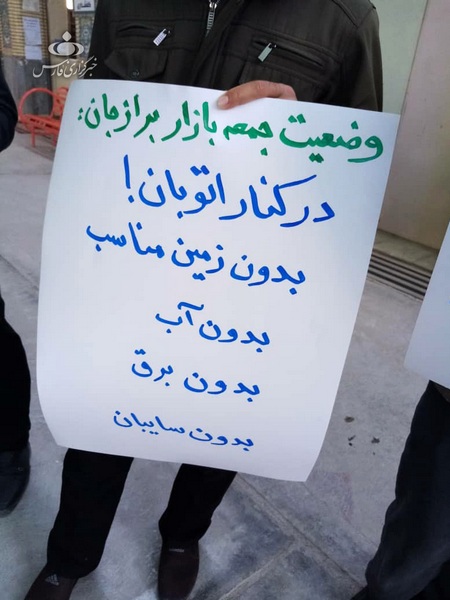 خبرگزاری فارس
وضعیت جمعه بازار برازجان:
در کنار اتوبان!
بدون زمین مناسب
بدون آب
بدون برق
بدون سایبان